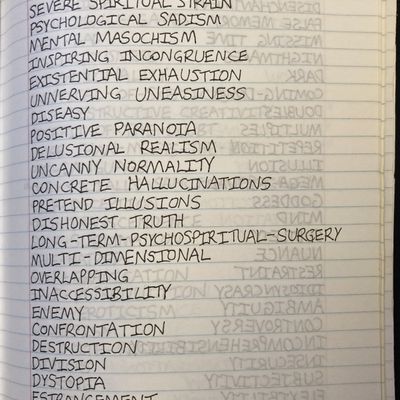 SEVERE SPIRITUAL STRAIN
PSYCHOLOGICAL SADISM
MENTAL MASOCHISM
INSPIRING INCONGRUENCE
EXISTENTIAL EXHAUSTION
UNNERVING UNEASINESS
DISEASY
POSITIVE PARANOIA
DELUSIONAL REALISM
UNCANNY NORMALITY
CONCRETE HALLUCINATIONS
PRETEND ILLUSIONS
DISHONEST TRUTH
LONG-TERM-PSYCHOSPIRITUAL-SURGERY
MULTI-DIMENSIONAL
OVERLAPPING
INACCESSIBILITY
ENEMY
CONFRONTATION
DESTRUCTION
DIVISION
DYSTOPIA
ESTRANGEMENT